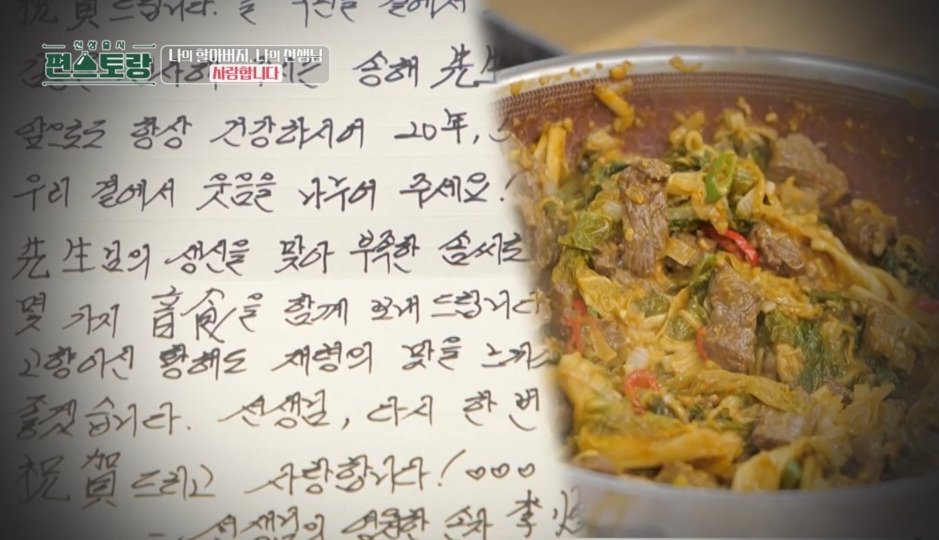 祝賀드립니다. 늘 곁에서
신상출시
편스토랑
나의 할아버지, 나의 선생님
사랑합니다
송해 先生
앞으로도 항상 건강하시어 20年,
우리 곁에서 웃음을 나누어 주세요!
先生님의 생신을 맞아 부족한 솜씨로
몇 가지 音食을 함께 보내 드립니다
고향이신 황해도 재령의 맛을 느끼
좋겠습니다. 선생님, 다시 한 번
祝賀드리고 사랑합니다! ♡♡♡
- 선생님의 영원한 손자 李